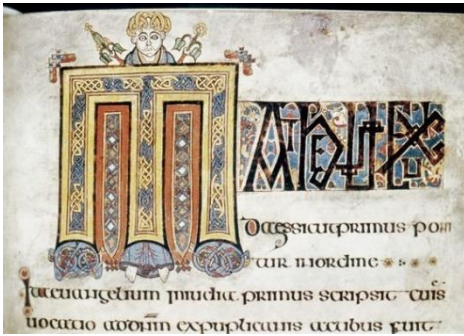 MATHEUS EX IU
daea sicut primus poni
tur inordine
ita euangelium iniudia primus scripsit cuis
uocatio addnm expuplicanis actibus fuit